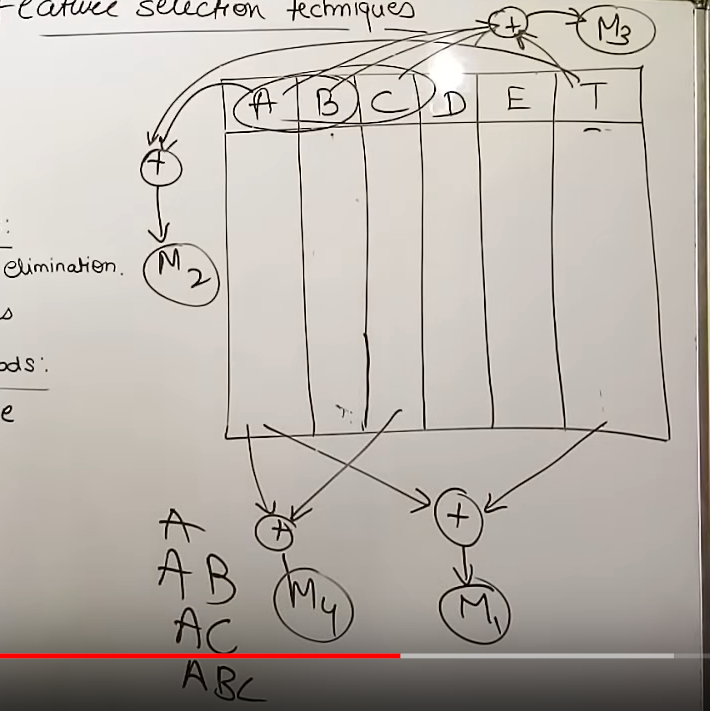 Feature selection techniques
+ M3
A B C D E T
+
:
elimination.
M2
s
ods:
e
+ +
A
A B M4 M1
AC
ABC